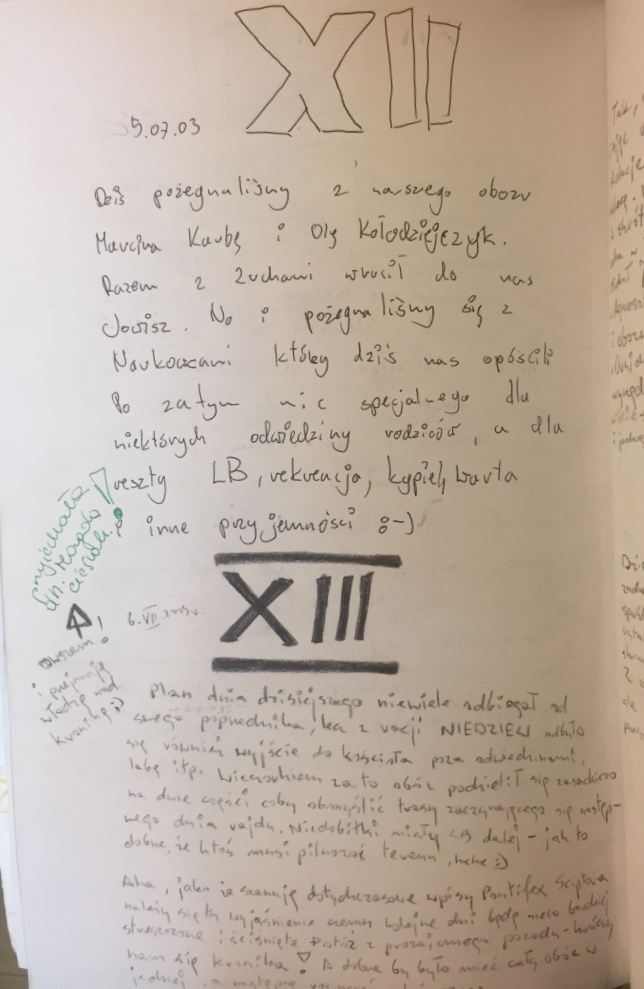 XII
5.07.03
Dziś pożegnaliśmy z naszego obozu
Marcina Kaubę i Olę Kołodziejczyk.
Razem z zuchami wrócił do nas
Jowisz. No i pożegnaliśmy się z
Naukowcami którzy dziś nas opóścili
Po zatym nic specjalnego dla
niektórych odwiedziny rodziców, a dla
reszty LB, rekreacja, kąpiel, warta
i inne przyjemności :-)
przyjechała
dh. Magda
XIII
6.VII 2003r.
owszem!
i przejmuję
władzę nad
kroniką :)
Plan dnia dzisiejszego niewiele odbiegał od
swego poprzednika, lecz z racji NIEDZIELI odbyło
się również wyjście do kościoła poza odwiedzinami,
labą itp. Wieczorkiem za to obóz podzielił się zasadniczo
na dwie części coby obmyślić trasy zaczynającego się następ-
nego dnia rajdu. Niedobitki miały LB dalej - jak to
dobrze, że ktoś musi pilnować terenu, hehe :)
Aha, jako że szanuję dotychczasowe wpisy Pontifex Scriptora
należy się tu wyjaśnienie czemu kolejne dni będą nieco bardziej
streszczone i ściśnięte otóż z prozaicznego powodu - kończy
nam się kronika! A dobrze by było mieć cały obóz w
jednej, a